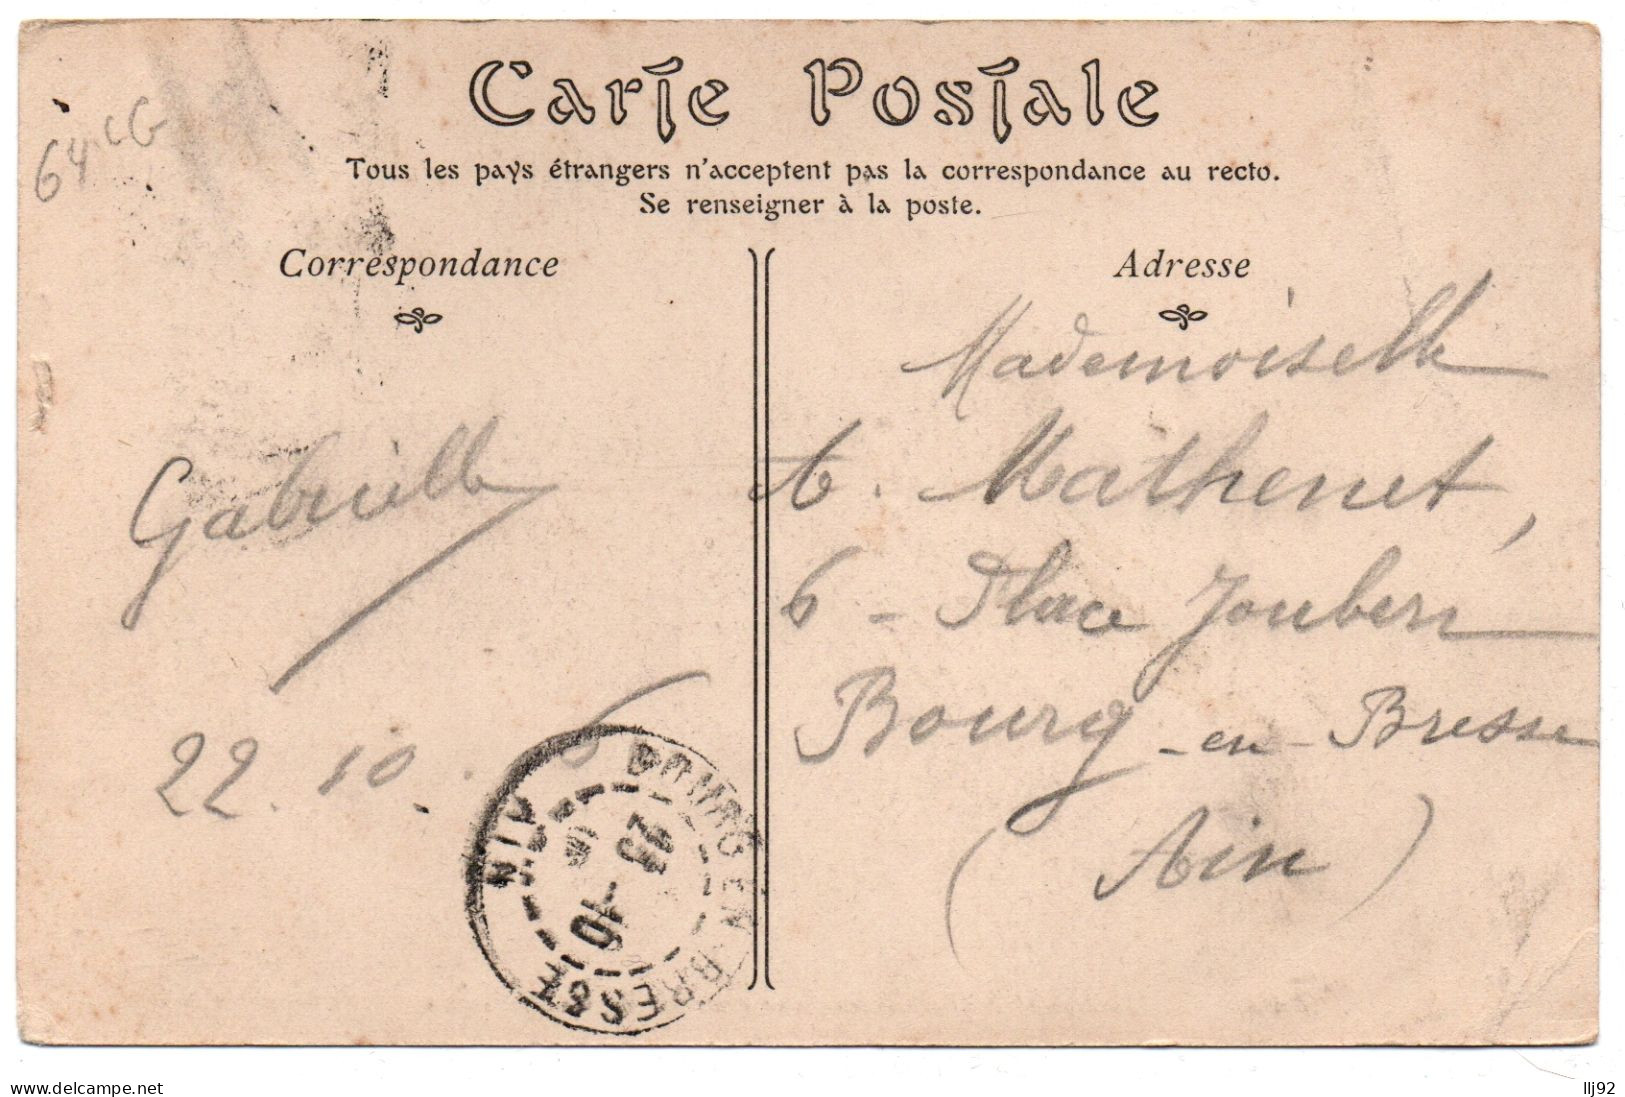 Carte Postale
Tous les pays étrangers n'acceptent pas la correspondance au recto.
Se renseigner à la poste.
Correspondance
Adresse
64 CG
Gabrielle
22.10.6
Mademoiselle
Mathenet,
6 - Place Joubert
Bourg-en-Bresse
(Ain)
BOURG EN BRESSE
AIN
23
10
www.delcampe.net
llj92